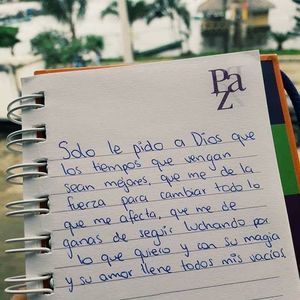 Paz
Solo le pido a Dios que
los tiempos que vengan
sean mejores, que me de la
fuerza para cambiar todo lo
que me afecta, que me de
ganas de seguir luchando por
lo que quiero y con su magia
y su amor llene todos mis vacíos.